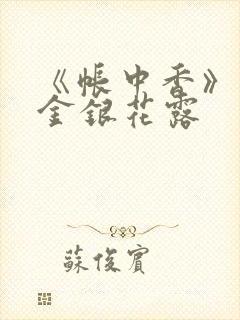 《帳中香》
金銀花露
蘇俊賓